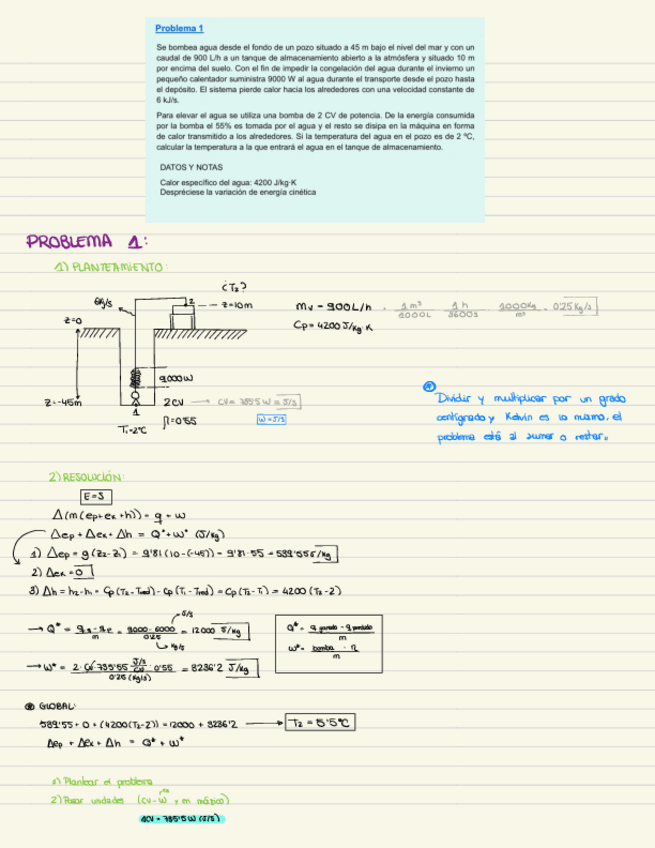 Problema 1
Se bombea agua desde el fondo de un pozo situado a 45 m bajo el nivel del mar y con un
caudal de 900 L/h a un tanque de almacenamiento abierto a la atmósfera y situado 10 m
por encima del suelo. Con el fin de impedir la congelación del agua durante el invierno un
pequeño calentador suministra 9000 W al agua durante el transporte desde el pozo hasta
el depósito. El sistema pierde calor hacia los alrededores con una velocidad constante de
6 kJ/s.
Para elevar el agua se utiliza una bomba de 2 CV de potencia. De la energía consumida
por la bomba el 55% es tomada por el agua y el resto se disipa en la máquina en forma
de calor transmitido a los alrededores. Si la temperatura del agua en el pozo es de 2 ºC,
calcular la temperatura a la que entrará el agua en el tanque de almacenamiento.
DATOS Y NOTAS
Calor específico del agua: 4200 J/kg·K
Despréciese la variación de energía cinética
PROBLEMA 1:
1) PLANTEAMIENTO:
¿T2?
6kJ/s
2
z=10m
z=0
mv = 900L/h · 1 m³/1000L · 1h/3600s · 1000Kg/m³ = 0'25 Kg/s
Cp = 4200 J/kg·K
9000W
z=-45m
1
2CV → CV = 735'5 W = J/s
η=0'55
W=J/s
T1=2ºC
Dividir y multiplicar por un grado
centígrado y Kelvin es lo mismo, el
problema está al sumar o restar.
2) RESOLUCIÓN:
E=S
Δ(m(ep+ex+h)) = q + w
Δep + Δex + Δh = Q* + W* (J/kg)
1) Δep = g(z2-z1) = 9'81(10-(-45)) = 9'81·55 = 539'55 J/kg
2) Δex = 0
3) Δh = h2-h1 = Cp(T2-Tred) - Cp(T1-Tred) = Cp(T2-T1) = 4200(T2-2)
J/s
→ Q* = /m = 9000-6000/0'25 = 12000 J/kg
Kg/s
Q* = q ganado - q perdido/m
W* = bomba · η/m
→ W* = 0'55/0'25(kg/s) = 3236'2 J/kg
GLOBAL:
539'55 + 0 + (4200(T2-2)) = 12000 + 3236'2 → T2 = 5'5ºC
Δep + Δex + Δh = Q* + W*
1) Plantear el problema
2) Pasar unidades
1CV = 735'5 W (J/s)